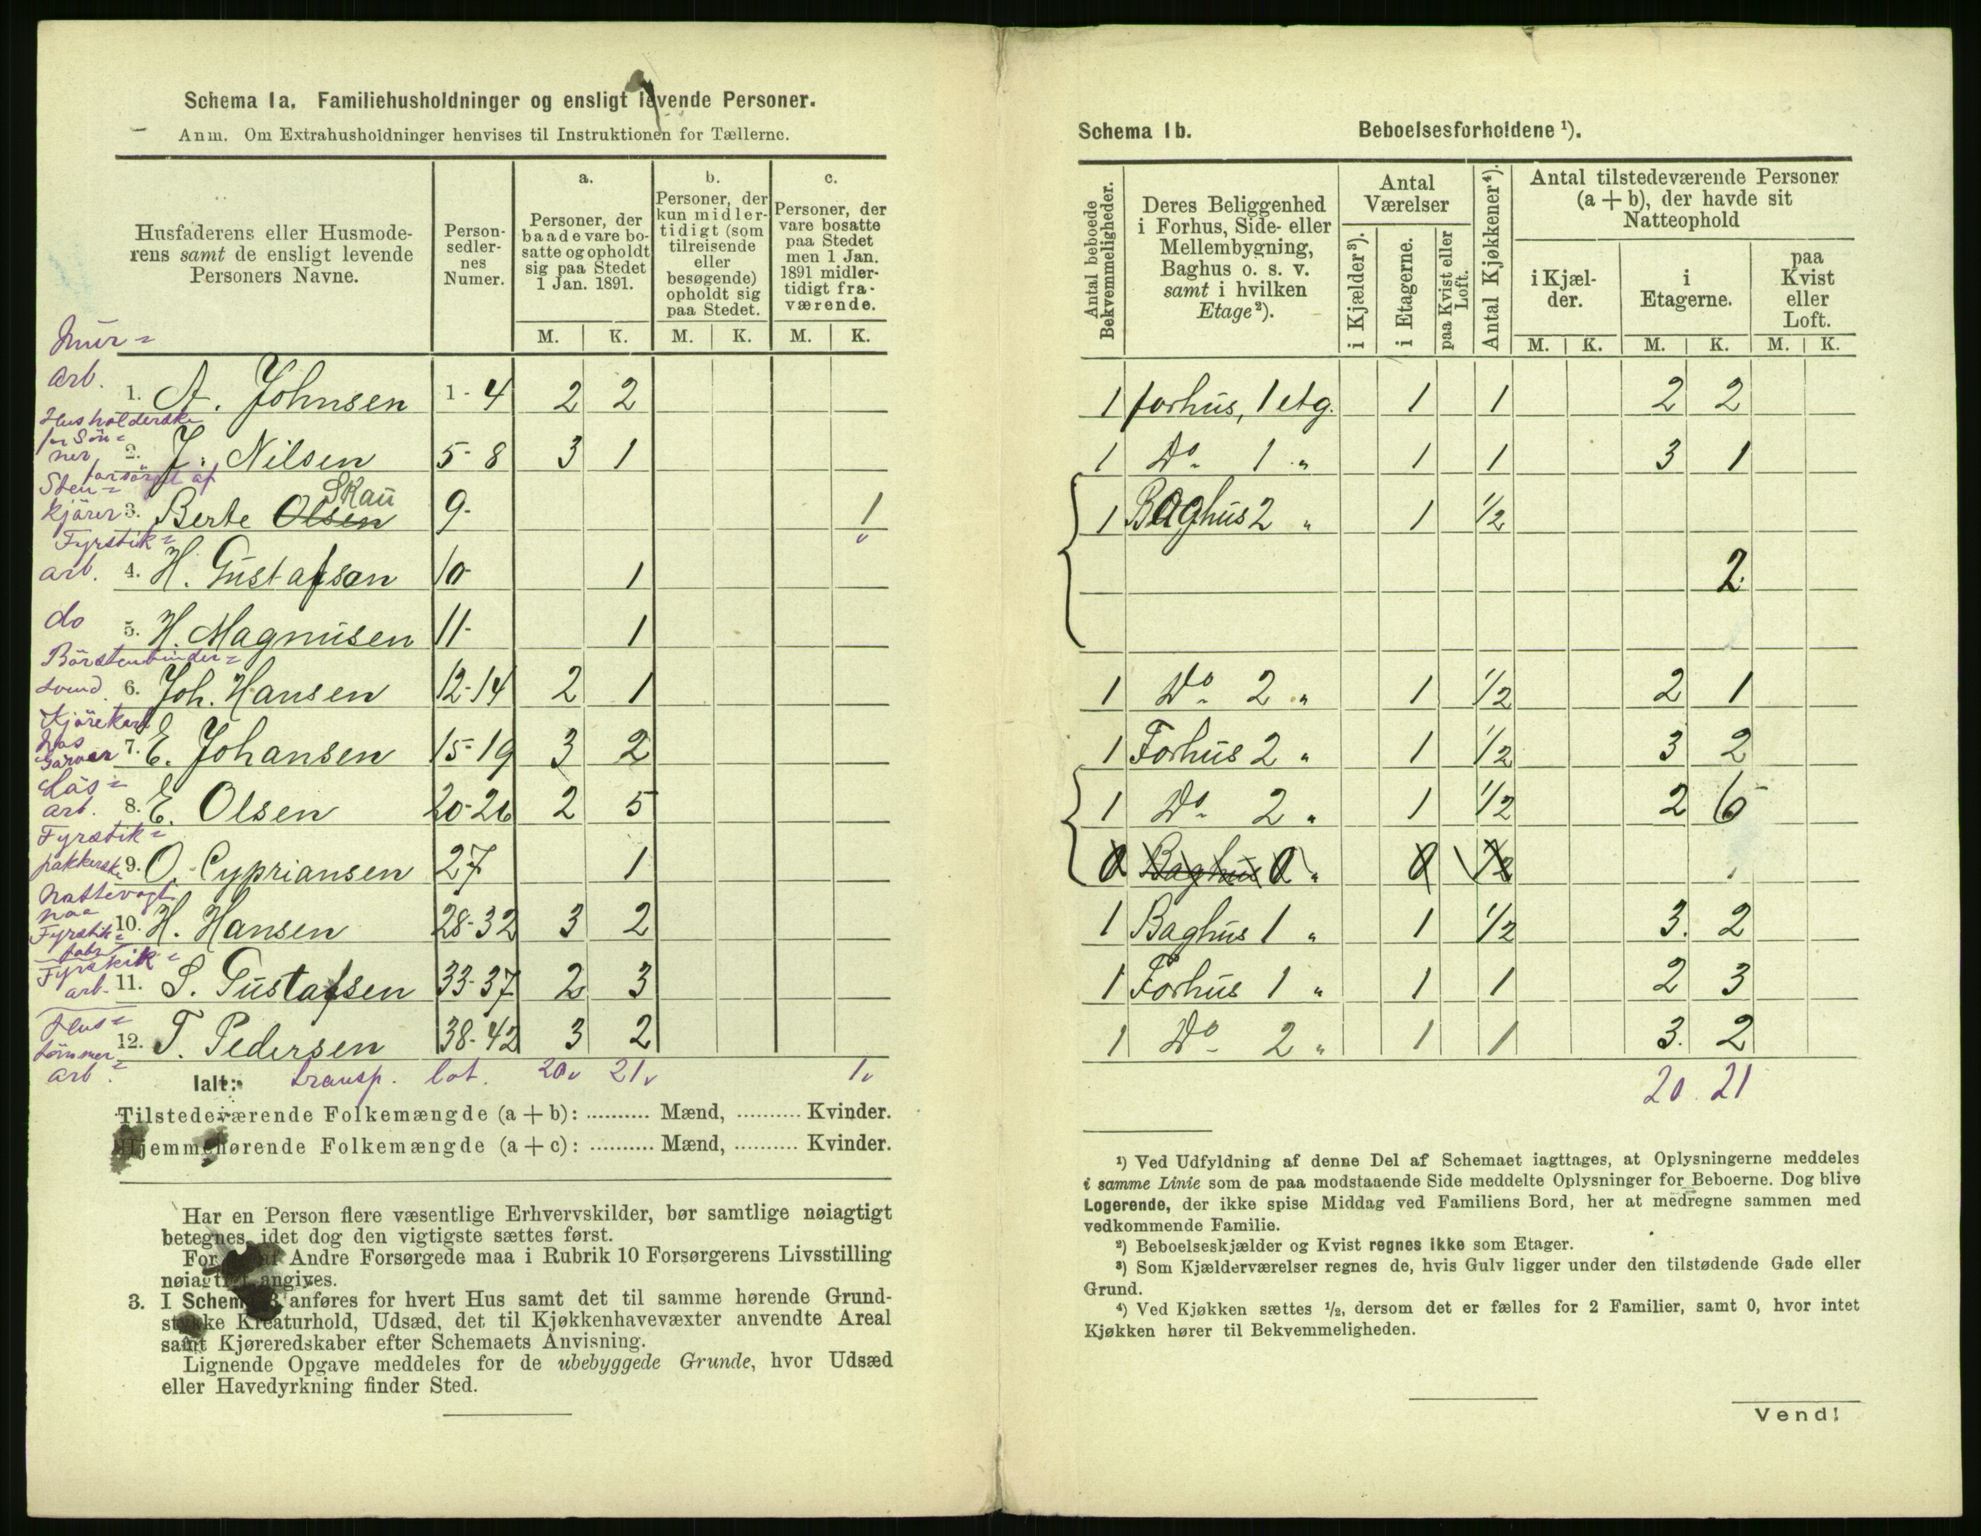 Schema 1a. Familiehusholdninger og ensligt levende Personer.
Anm. Om Extrahusholdninger henvises til Instruktionen for Tællerne.
Husfaderens eller Husmode-
rens samt de ensligt levende
Personers Navne.
Person-
sedler-
nes
Numer.
a.
Personer, der
baade vare bo-
satte og opholdt
sig paa Stedet
1 Jan. 1891.
b.
Personer, der
kun midler-
tidigt (som
tilreisende
eller
besøgende)
opholdt sig
paa Stedet.
c.
Personer, der
vare bosatte
paa Stedet
men 1 Jan.
1891 midler-
tidigt fra-
værende.
M. K. M. K. M. K.
Mur=
arb.
1. A. Johnsen 1-4 2 2
Husholderske
for Søn=
ner
2. J. Nilsen 5-8 3 1
forsørget af
Sten=
kjører
Skau
3. Berte Olsen 9- 1
Fyrstik=
arb.
4. H. Gustafsen 10- 1
do
5. H. Magnusen 11- 1
Börstenbinder=
svend
6. Joh. Hansen 12-14 2 1
Kjörekarl
hos
Garver
7. E. Johansen 15-19 3 2
Løs=
arb.
8. E. Olsen 20-26 2 5
Fyrstik=
pakkerske
9. O. Cypriansen 27 1
Nattevagt
paa
Fyrstik=
fabr.
10. H. Hansen 28-32 3 2
Fyrstik=
arb.
11. S. Gustafsen 33-37 2 3
Hus=
tømmer=
arb.
12. T. Pedersen 38-42 3 2
Ialt: transp. lat. 20 21 1
Tilstedeværende Folkemængde (a + b): .......... Mænd, .......... Kvinder.
Hjemmehørende Folkemængde (a + c): .......... Mænd, .......... Kvinder.
Har en Person flere væsentlige Erhvervskilder, bør samtlige nøiagtigt
betegnes, idet dog den vigtigste sættes først.
For af Andre Forsørgede maa i Rubrik 10 Forsørgerens Livsstilling
nøiagtigt angives.
3. I Schema 3 anføres for hvert Hus samt det til samme hørende Grund-
stykke Kreaturhold, Udsæd, det til Kjøkkenhavevæxter anvendte Areal
samt Kjøreredskaber efter Schemaets Anvisning.
Lignende Opgave meddeles for de ubebyggede Grunde, hvor Udsæd
eller Havedyrkning finder Sted.
Schema 1b. Beboelsesforholdene ¹).
Antal beboede
Bekvemmeligheder.
Deres Beliggenhed
i Forhus, Side- eller
Mellembygning,
Baghus o. s. v.
samt i hvilken
Etage²).
Antal
Værelser
i Kjælder³).
i Etagerne.
paa Kvist eller
Loft.
Antal Kjøkkener⁴).
Antal tilstedeværende Personer
(a + b), der havde sit
Natteophold
i Kjæl-
der.
i
Etagerne.
paa
Kvist
eller
Loft.
M. K. M. K. M. K.
1 forhus, 1 etg. 1 1 2 2
1 Do 1 " 1 1 3 1
1 Baghus 2 " 1 1/2
2
1 Do 2 " 1 1/2 2 1
1 Forhus 2 " 1 1/2 3 2
1 Do 2 " 1 1/2 2 6
0 Baghus 0 " 0 1/2
1 Baghus 1 " 1 1/2 3 2
1 Forhus 1 " 1 1 2 3
1 Do 2 " 1 1 3 2
20 21
¹) Ved Udfyldning af denne Del af Schemaet iagttages, at Oplysningerne meddeles
i samme Linie som de paa modstaaende Side meddelte Oplysninger for Beboerne. Dog blive
Logerende, der ikke spise Middag ved Familiens Bord, her at medregne sammen med
vedkommende Familie.
²) Beboelseskjælder og Kvist regnes ikke som Etager.
³) Som Kjælderværelser regnes de, hvis Gulv ligger under den tilstødende Gade eller
Grund.
⁴) Ved Kjøkken sættes 1/2, dersom det er fælles for 2 Familier, samt 0, hvor intet
Kjøkken hører til Bekvemmeligheden.
Vend!